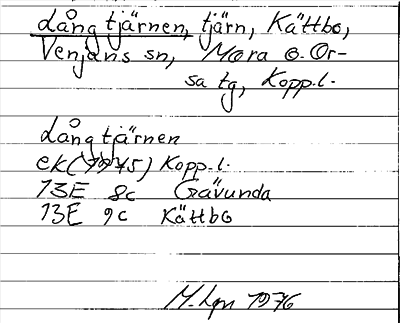 Långtjärnen, tjärn, Kättbo,
Venjans sn, Mora o. Or-
sa tg, Kopp.l.
Långtjärnen
ek (1975) Kopp.l.
13E 8c Gävunda
13E 9c Kättbo
M. Lgn 1976